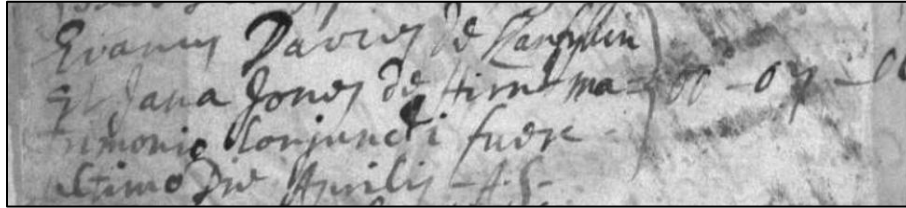 Evanus Davies de Llanfyllin
et Jana Jones de Hirnant ma=
trimonio Conjuncti fuere
ultimo Die Aprilis